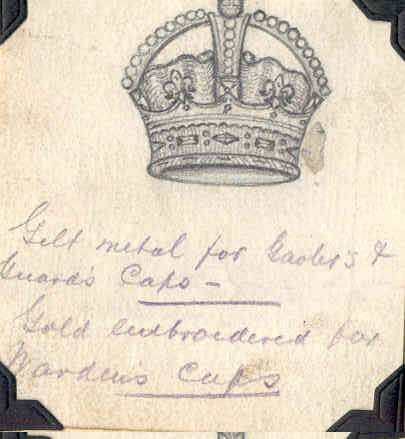 Gilt metal for Gaoler's &
Guard's Caps -
Gold embroidered for
Warden's Caps